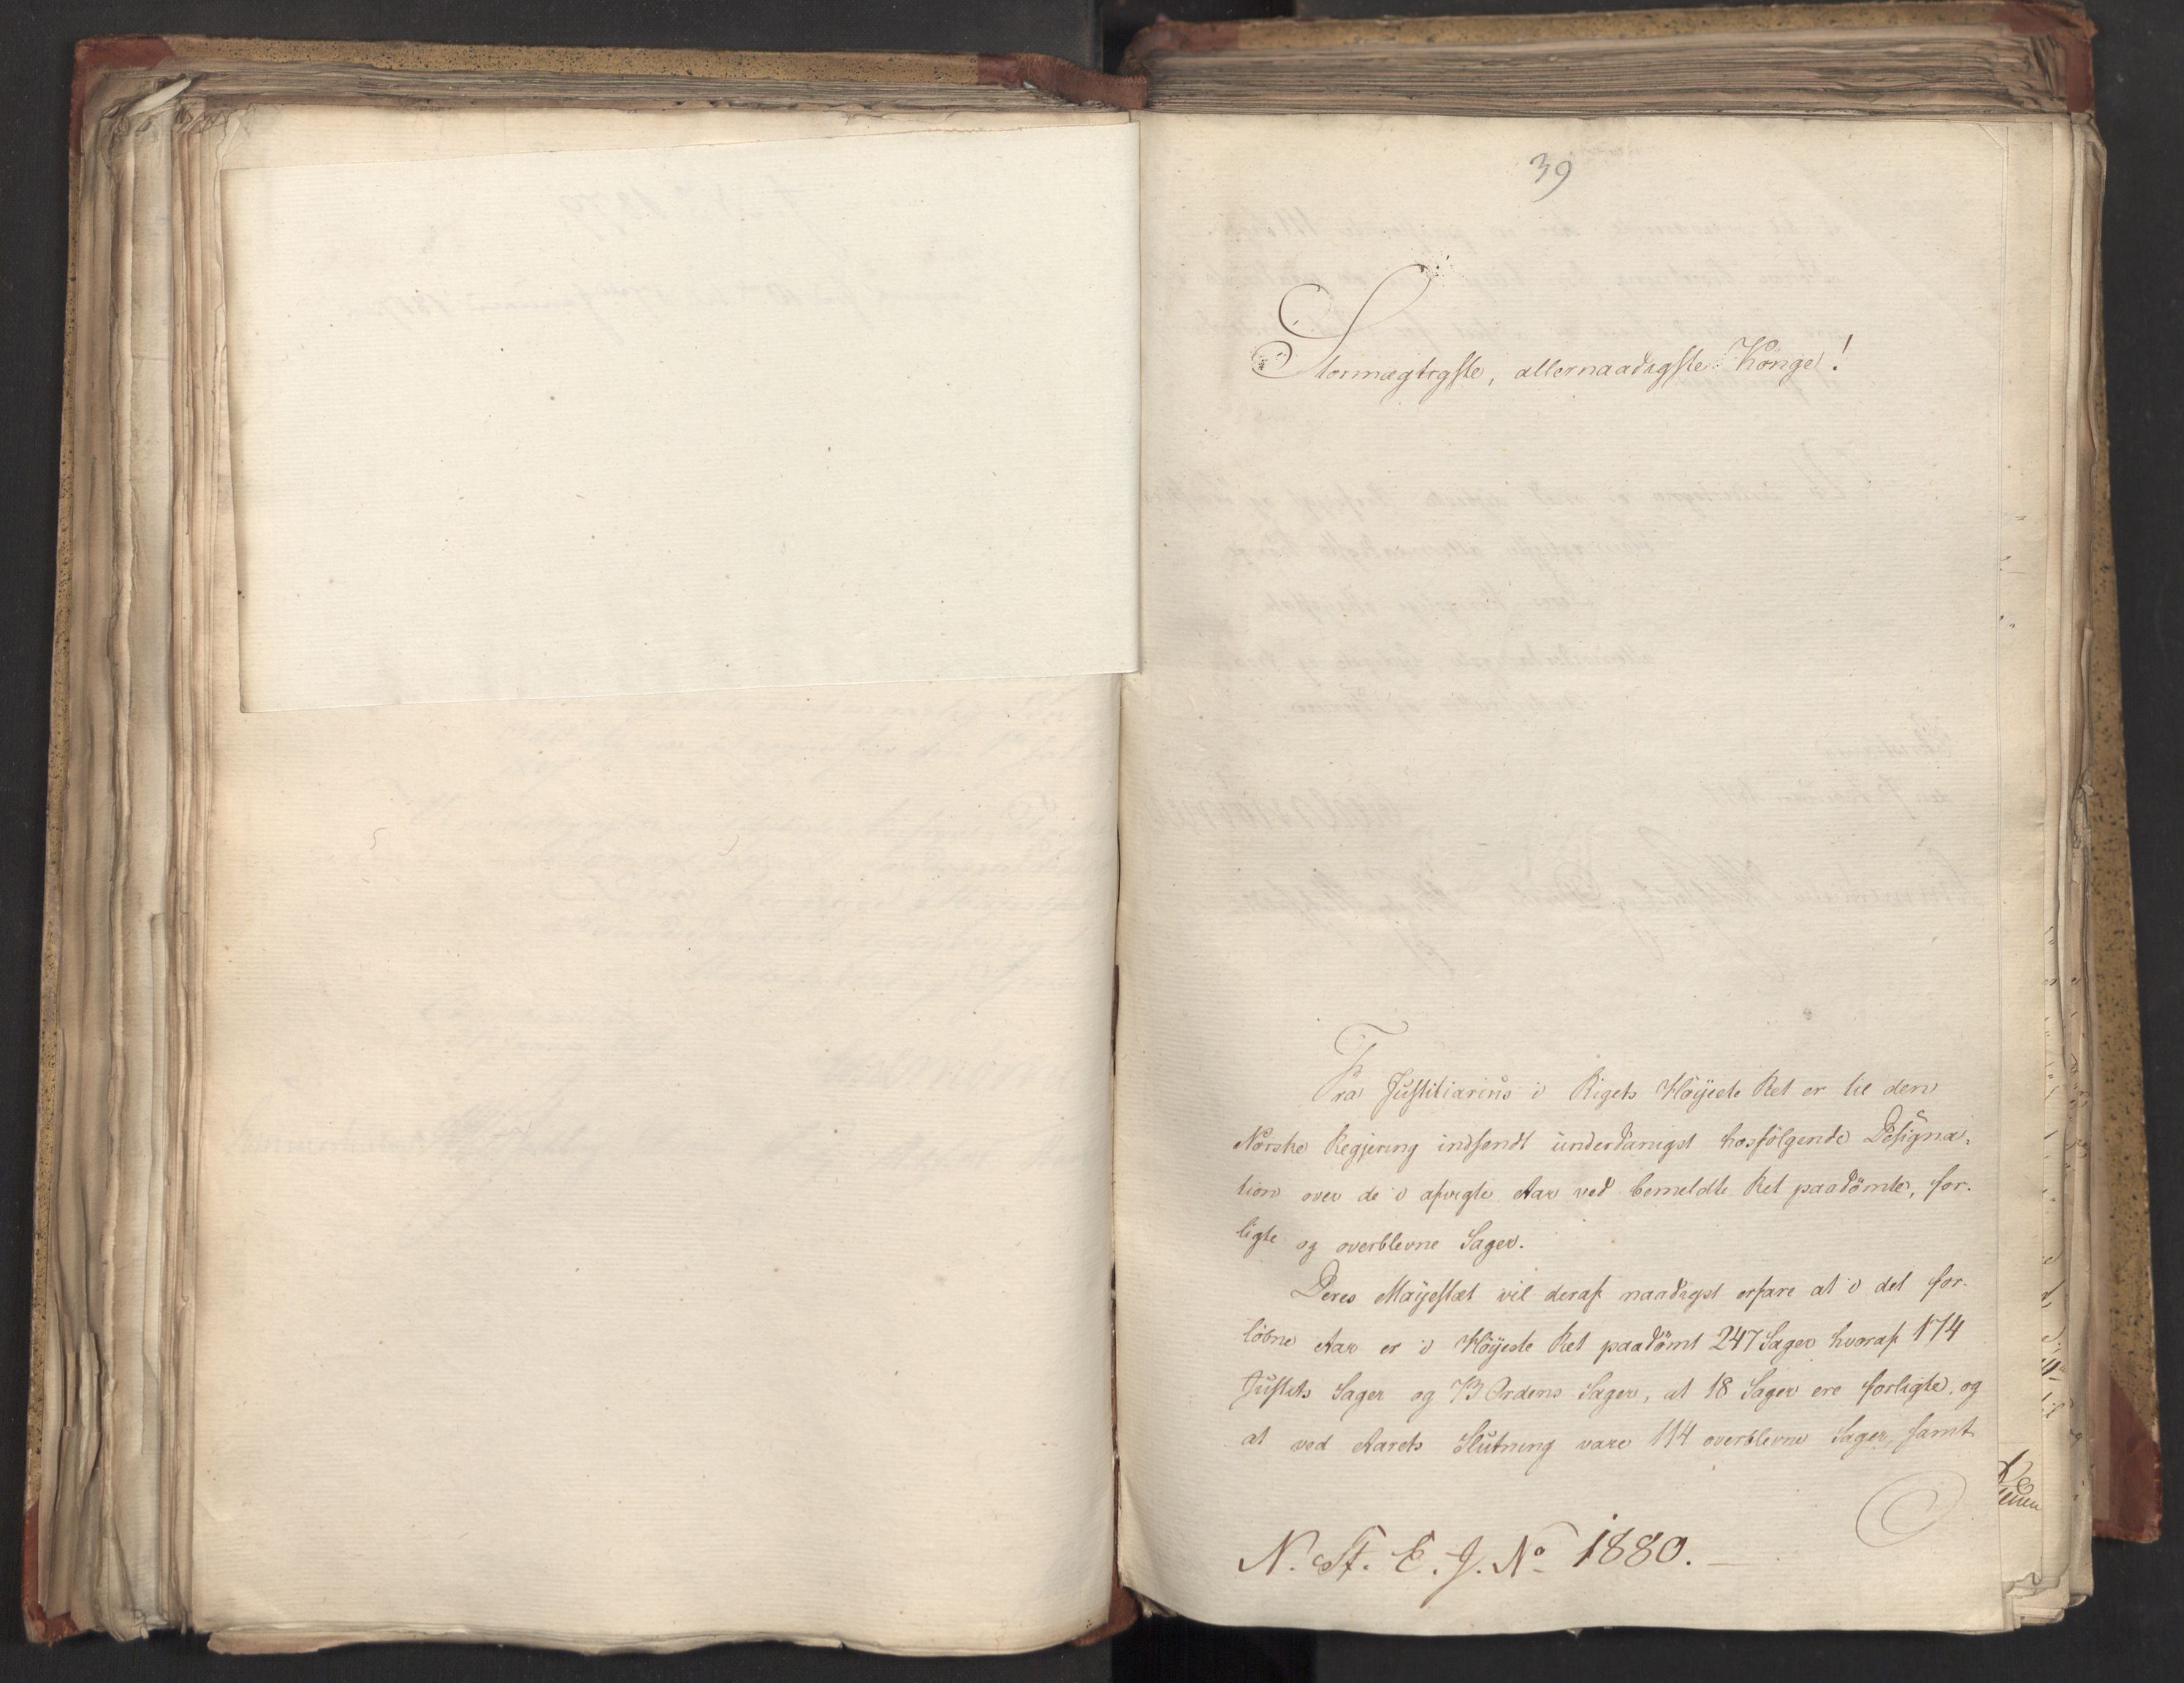 39
Stormægtigste, allernaadigste Konge!
Fra Justitiarius i Rigets Höÿeste Ret er til den
Norske Regjering indsendt underdanigst hosfölgende Designa-
tion over de i afvigte Aar ved bemeldte Ret paadömte, for-
ligte og overblevne Sager.
Deres Majestæt vil deraf naadigst erfare at i det for-
löbne Aar er i Höÿeste Ret paadömt 247 Sager hvoraf 174
Justits Sager og 73 Ordens Sager, at 18 Sager ere forligte, og
at ved Aarets Slutning vare 114 overblevne Sager, samt
N. St. E. J. No 1880.